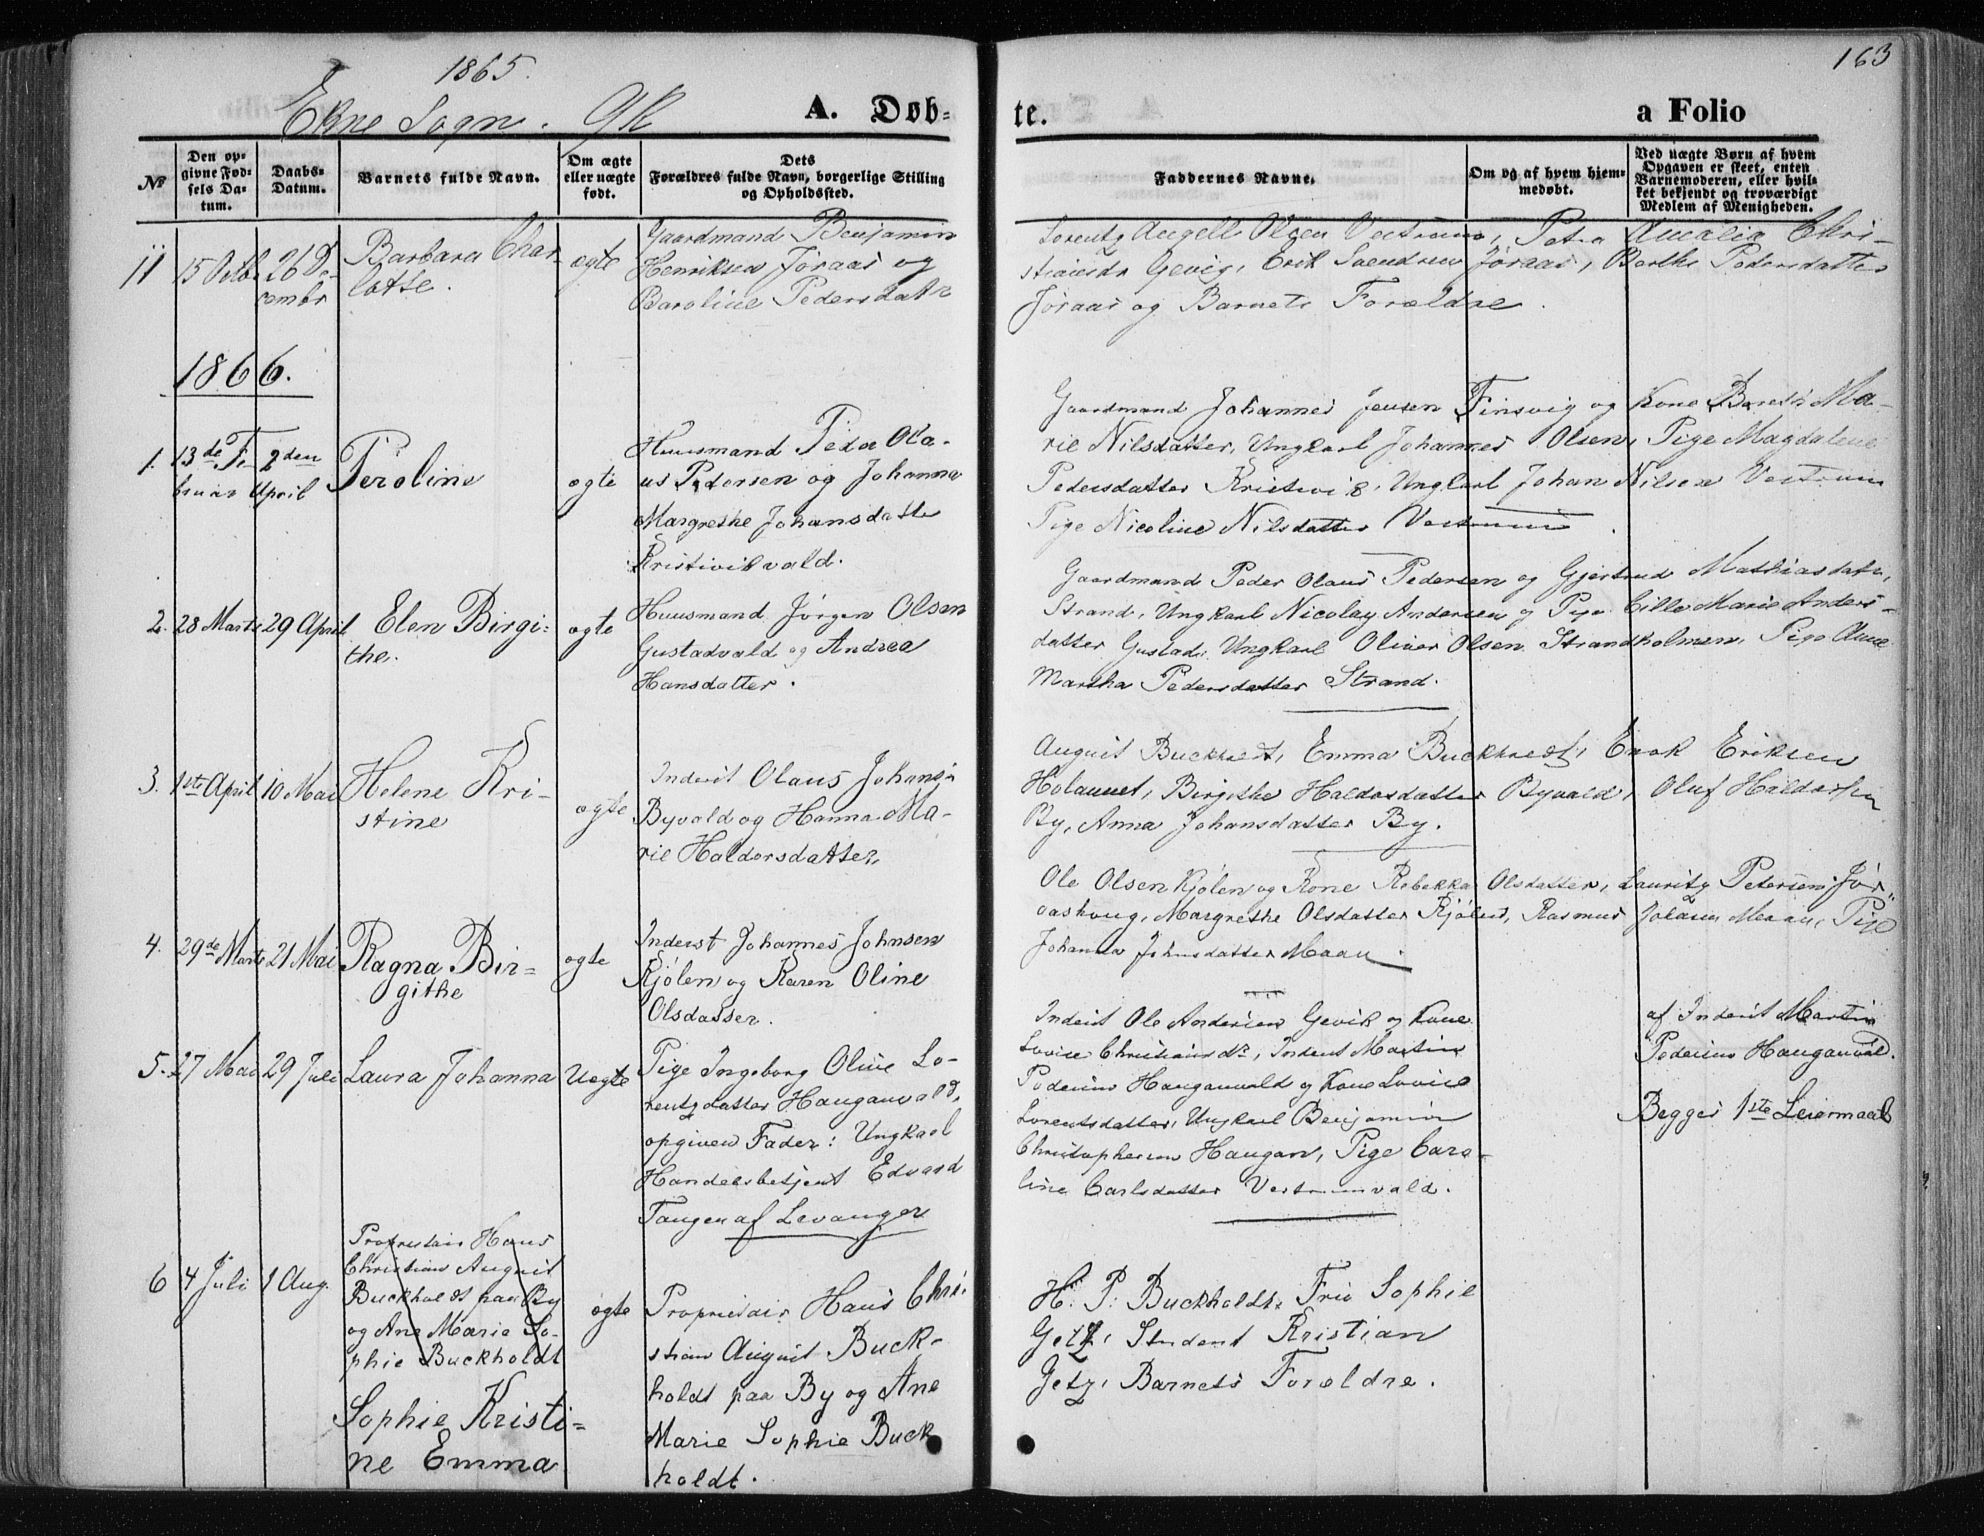 1865.
163
Ekne Sogn. Qk
A. Døb-
te.
a Folio
№
Den op-
givne Fød-
sels Da-
tum.
Daabs-
Datum.
Barnets fulde Navn.
Om ægte
eller uægte
født.
Dets
Forældres fulde Navn, borgerlige Stilling
og Opholdssted.
Faddernes Navne.
Om og af hvem hjem-
medøbt.
Ved uægte Børn af hvem
Opgaven er skeet, enten
Barnemoderen, eller hvil-
ket bekjendt og troværdigt
Medlem af Menigheden.
11
15 Octb.
26 De-
cembr
Barbara Char-
lotte.
ægte
Gaardmand Benjamin
Henriksen Jøraas og
Baroline Pedersdatr
Lorentz Angell Olsen Vestrum, Petra Amalia Chri-
stiansdr Gevig, Erik Svendsen Jøraas, Berthe Pedersdatter
Jøraas og Barnets Forældre.
1866.
1.
13de Fe-
bruar
2den
April
Peroline
ægte
Huusmand Peder Ola-
us Pedersen og Johanna
Margrethe Johansdatter
Kristivikvald.
Gaardmand Johannes Jensen Finsvig og Kone Bereth Ma-
rie Nilsdatter, Ungkarl Johannes Olsen, Pige Magdalene
Pedersdatter Kristvig, Ungkarl Johan Nilsen Vestrum
Pige Nicoline Nilsdatter Vestrum.
2.
28 Marts
29 April
Elen Birgi-
the.
ægte
Huusmand Jørgen Olsen
Gustadvald og Andrea
Hansdatter.
Gaardmand Peder Olaus Pedersen og Gjertrud Mathiasdatr,
Strand, Ungkarl Nicolay Andersen og Pige Cille Marie Anders-
datter Gustad, Ungkarl Oliver Olsen Strandholmen, Pige Anne
Martha Pedersdatter Strand.
3.
1ste April
10 Mai
Helene Kri-
stine
ægte
Inderst Olaus Johans.
Byvald og Hanna Ma-
rie Haldorsdatter,
August Buckholdt, Emma Buckholdt, Enok Eriksen
Holaunet, Birgithe Haldorsdatter Byvald, Oluf Haldorsen
By, Anna Johansdatter By.
4.
29de Marts
21 Mai
Ragna Bir-
githe
ægte
Inderst Johannes Johnsen
Kjølen og Karen Oline
Olsdatter.
Ole Olsen Kjølen og Kone Rebekka Olsdatter, Lauritz Petersen Jør-
aashaug, Margrethe Olsdatter Kjølen, Rasmus Johansen Maan, Pige
Johanna Johnsdatter Maan.
5.
27 Mai
29 Juli
Laura Johanna
Uægte
Pige Ingeborg Oline Lo-
rentzdatter Hauganvald,
opgiven Fader: Ungkarl
Handelsbetjent Edvard
Tangen af Levanger
Inderst Ole Andersen Gevik og Kone
Lovise Christiansdr, Inderst Martin
Pedersen Hauganvald og Kone Lovise
Lorentsdatter, Ungkarl Benjamin
Christophersen Haugan, Pige Caro-
line Carlsdatter Vestrumvald.
af Inderst Martin
Pedersen Hauganvald.
Begges 1ste Leiermaal
6
4 Juli
1 Aug.
Proprietair Hans
Christian August
Buckholdt paa By
og Ane Marie So-
phie Buckholdt
Sophie Kristi-
ne Emma
ægte
Proprietair Hans Chri-
stian August Buck-
holdt paa By og Ane
Marie Sophie Buck
holdt.
H. P. Buckholdt, Frø Sophie
Getz, Student Kristian
Getz, Barnets Forældre.